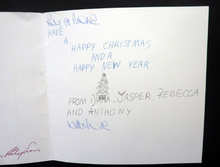 HAVE
A
HAPPY CHRISTMAS
AND A
HAPPY NEW YEAR
FROM JASPER, REBECCA
AND ANTHONY